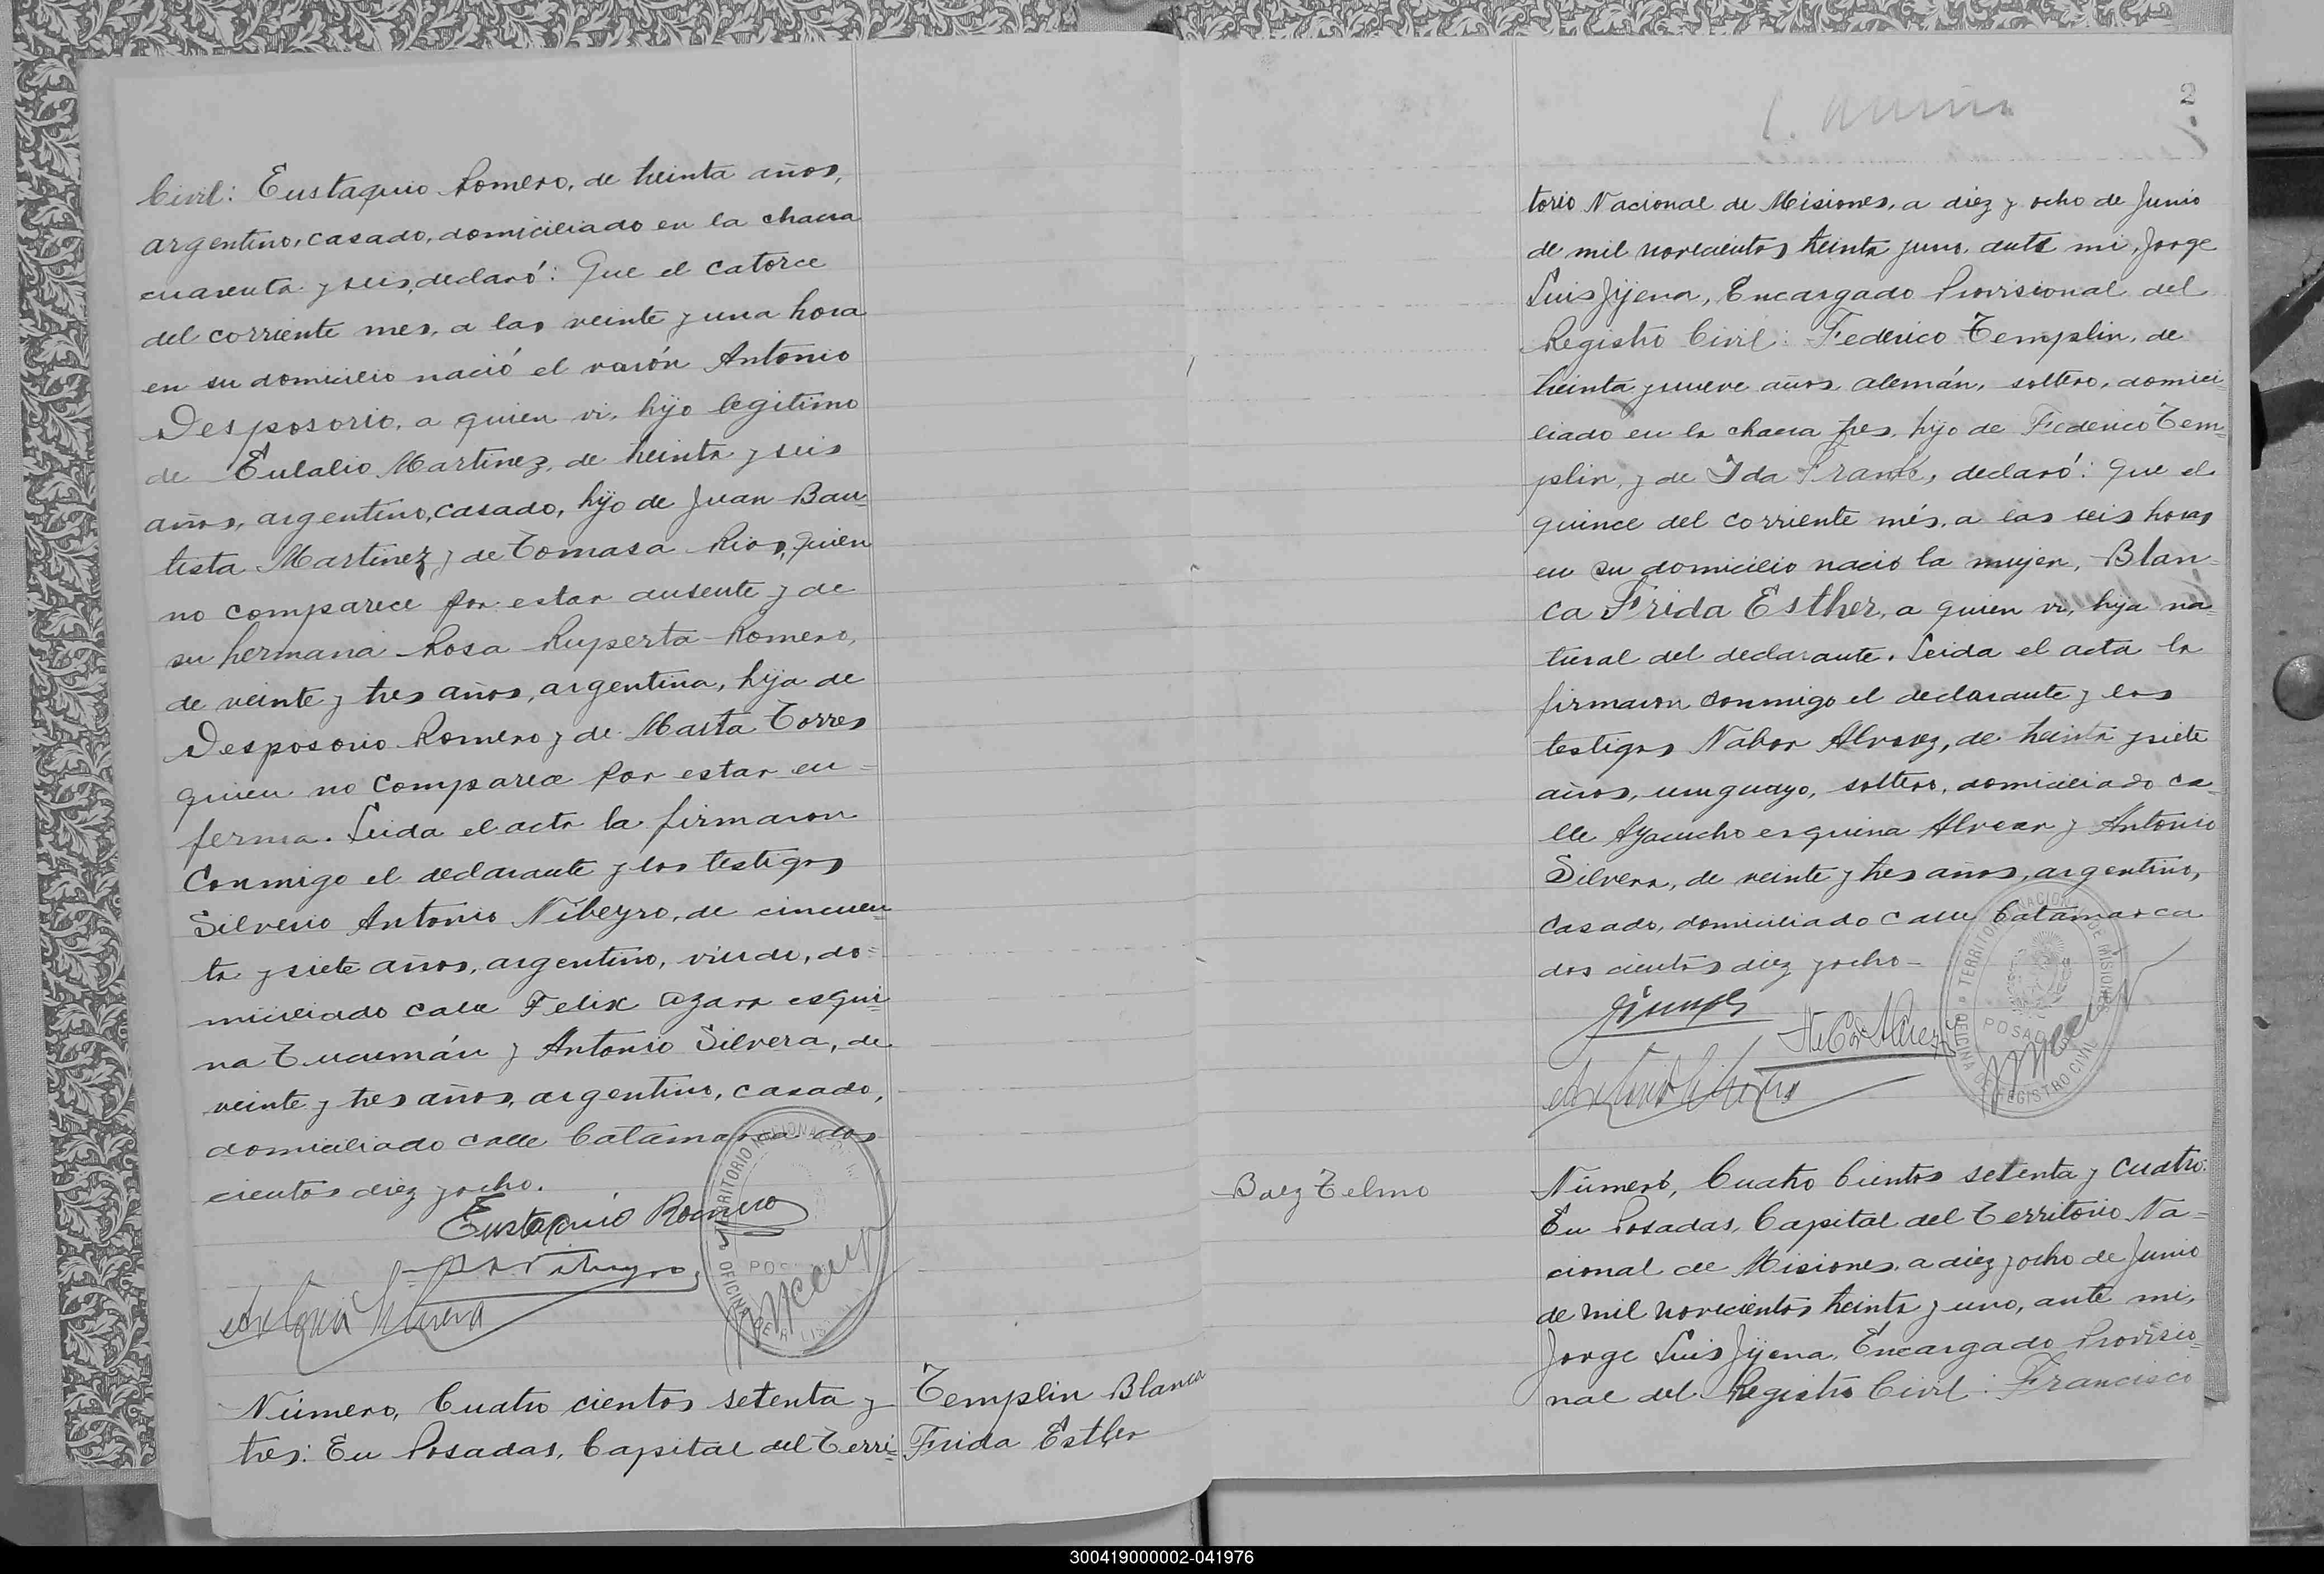 Civil: Eustaquio Romero, de treinta años,
argentino, casado, domiciliado en la chacra
cuarenta y seis, declaró: Que el catorce
del corriente mes, a las veinte y una hora
en su domicilio nació el varón Antonio
Desposorio, a quien vi, hijo legitimo
de Eulalio Martinez, de treinta y seis
años, argentino, casado, hijo de Juan Bau=
tista Martinez y de Tomasa Rios, quien
no comparece por estar ausente y de
su hermana Rosa Ruperta Romero,
de veinte y tres años, argentina, hija de
Desposorio Romero y de Marta Torres
quien no comparece por estar en=
ferma. Leida el acta la firmaron
conmigo el declarante y los testigos
Silverio Antonio Nibeyro, de cincuen
ta y siete años, argentino, viudo, do=
miciliado calle Felix Azara esqui=
na Tucumán y Antonio Silvera, de
veinte y tres años, argentino, casado,
domiciliado calle Catamarca dos
cientos diez y ocho.
Eustaquio Romero
Antonio Silvera
TERRITORIO NACIONAL
OFICINA DE
Número, Cuatro cientos setenta y
tres: En Posadas, Capital del Terri=
Templin Blanca
Frida Esther
2
torio Nacional de Misiones, a diez y ocho de Junio
de mil novecientos treinta y uno, ante mi, Jorge
Luis Jijena, Encargado Provisional del
Registro Civil: Federico Templin, de
treinta y nueve años, alemán, soltero, domici=
liado en la chacra tres, hijo de Federico Tem=
plin, y de Ida, declaró: Que el
quince del corriente més, a las seis horas
en su domicilio nació la mujer, Blan=
ca Frida Esther, a quien vi, hija na=
tural del declarante. Leida el acta la
firmaron conmigo el declarante y los
testigos Nabor Alvarez, de treinta y siete
años, uruguayo, soltero, domiciliado ca=
lle Ayacucho esquina Alvear y Antonio
Silvera, de veinte y tres años, argentino,
casado, domiciliado calle Catamarca
dos cientos diez y ocho-
Antonio Silvera
TERRITORIO NACIONAL DE MISIONES
POSADAS
OFICINA DE REGISTRO CIVIL
Baez Telmo
Número, Cuatro Cientos setenta y cuatro:
En Posadas, Capital del Territorio Na=
cional de Misiones, a diez y ocho de Junio
de mil novecientos treinta y uno, ante mi,
Jorge Luis Jijena, Encargado Provisio=
nal del Registro Civil: Francisco
300419000002-041976